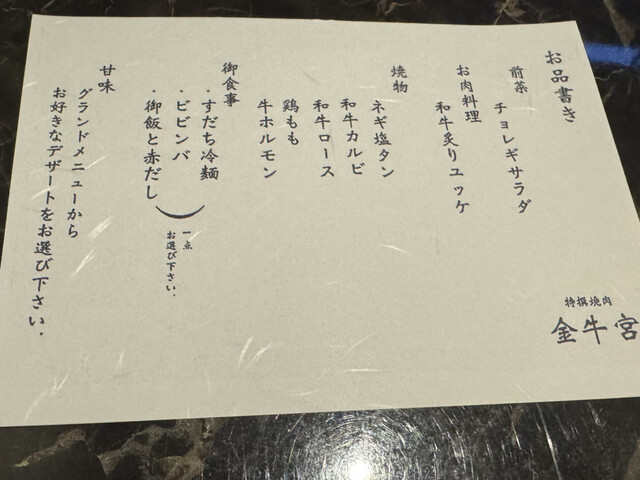 お品書き
前菜
チョレギサラダ
お肉料理
和牛炙りユッケ
焼物
ネギ塩タン
和牛カルビ
和牛ロース
鶏もも
牛ホルモン
御食事
・すだち冷麺
・ビビンバ
・御飯と赤だし
一点
お選び下さい.
甘味
グランドメニューから
お好きなデザートをお選び下さい.
特撰焼肉
金牛宮